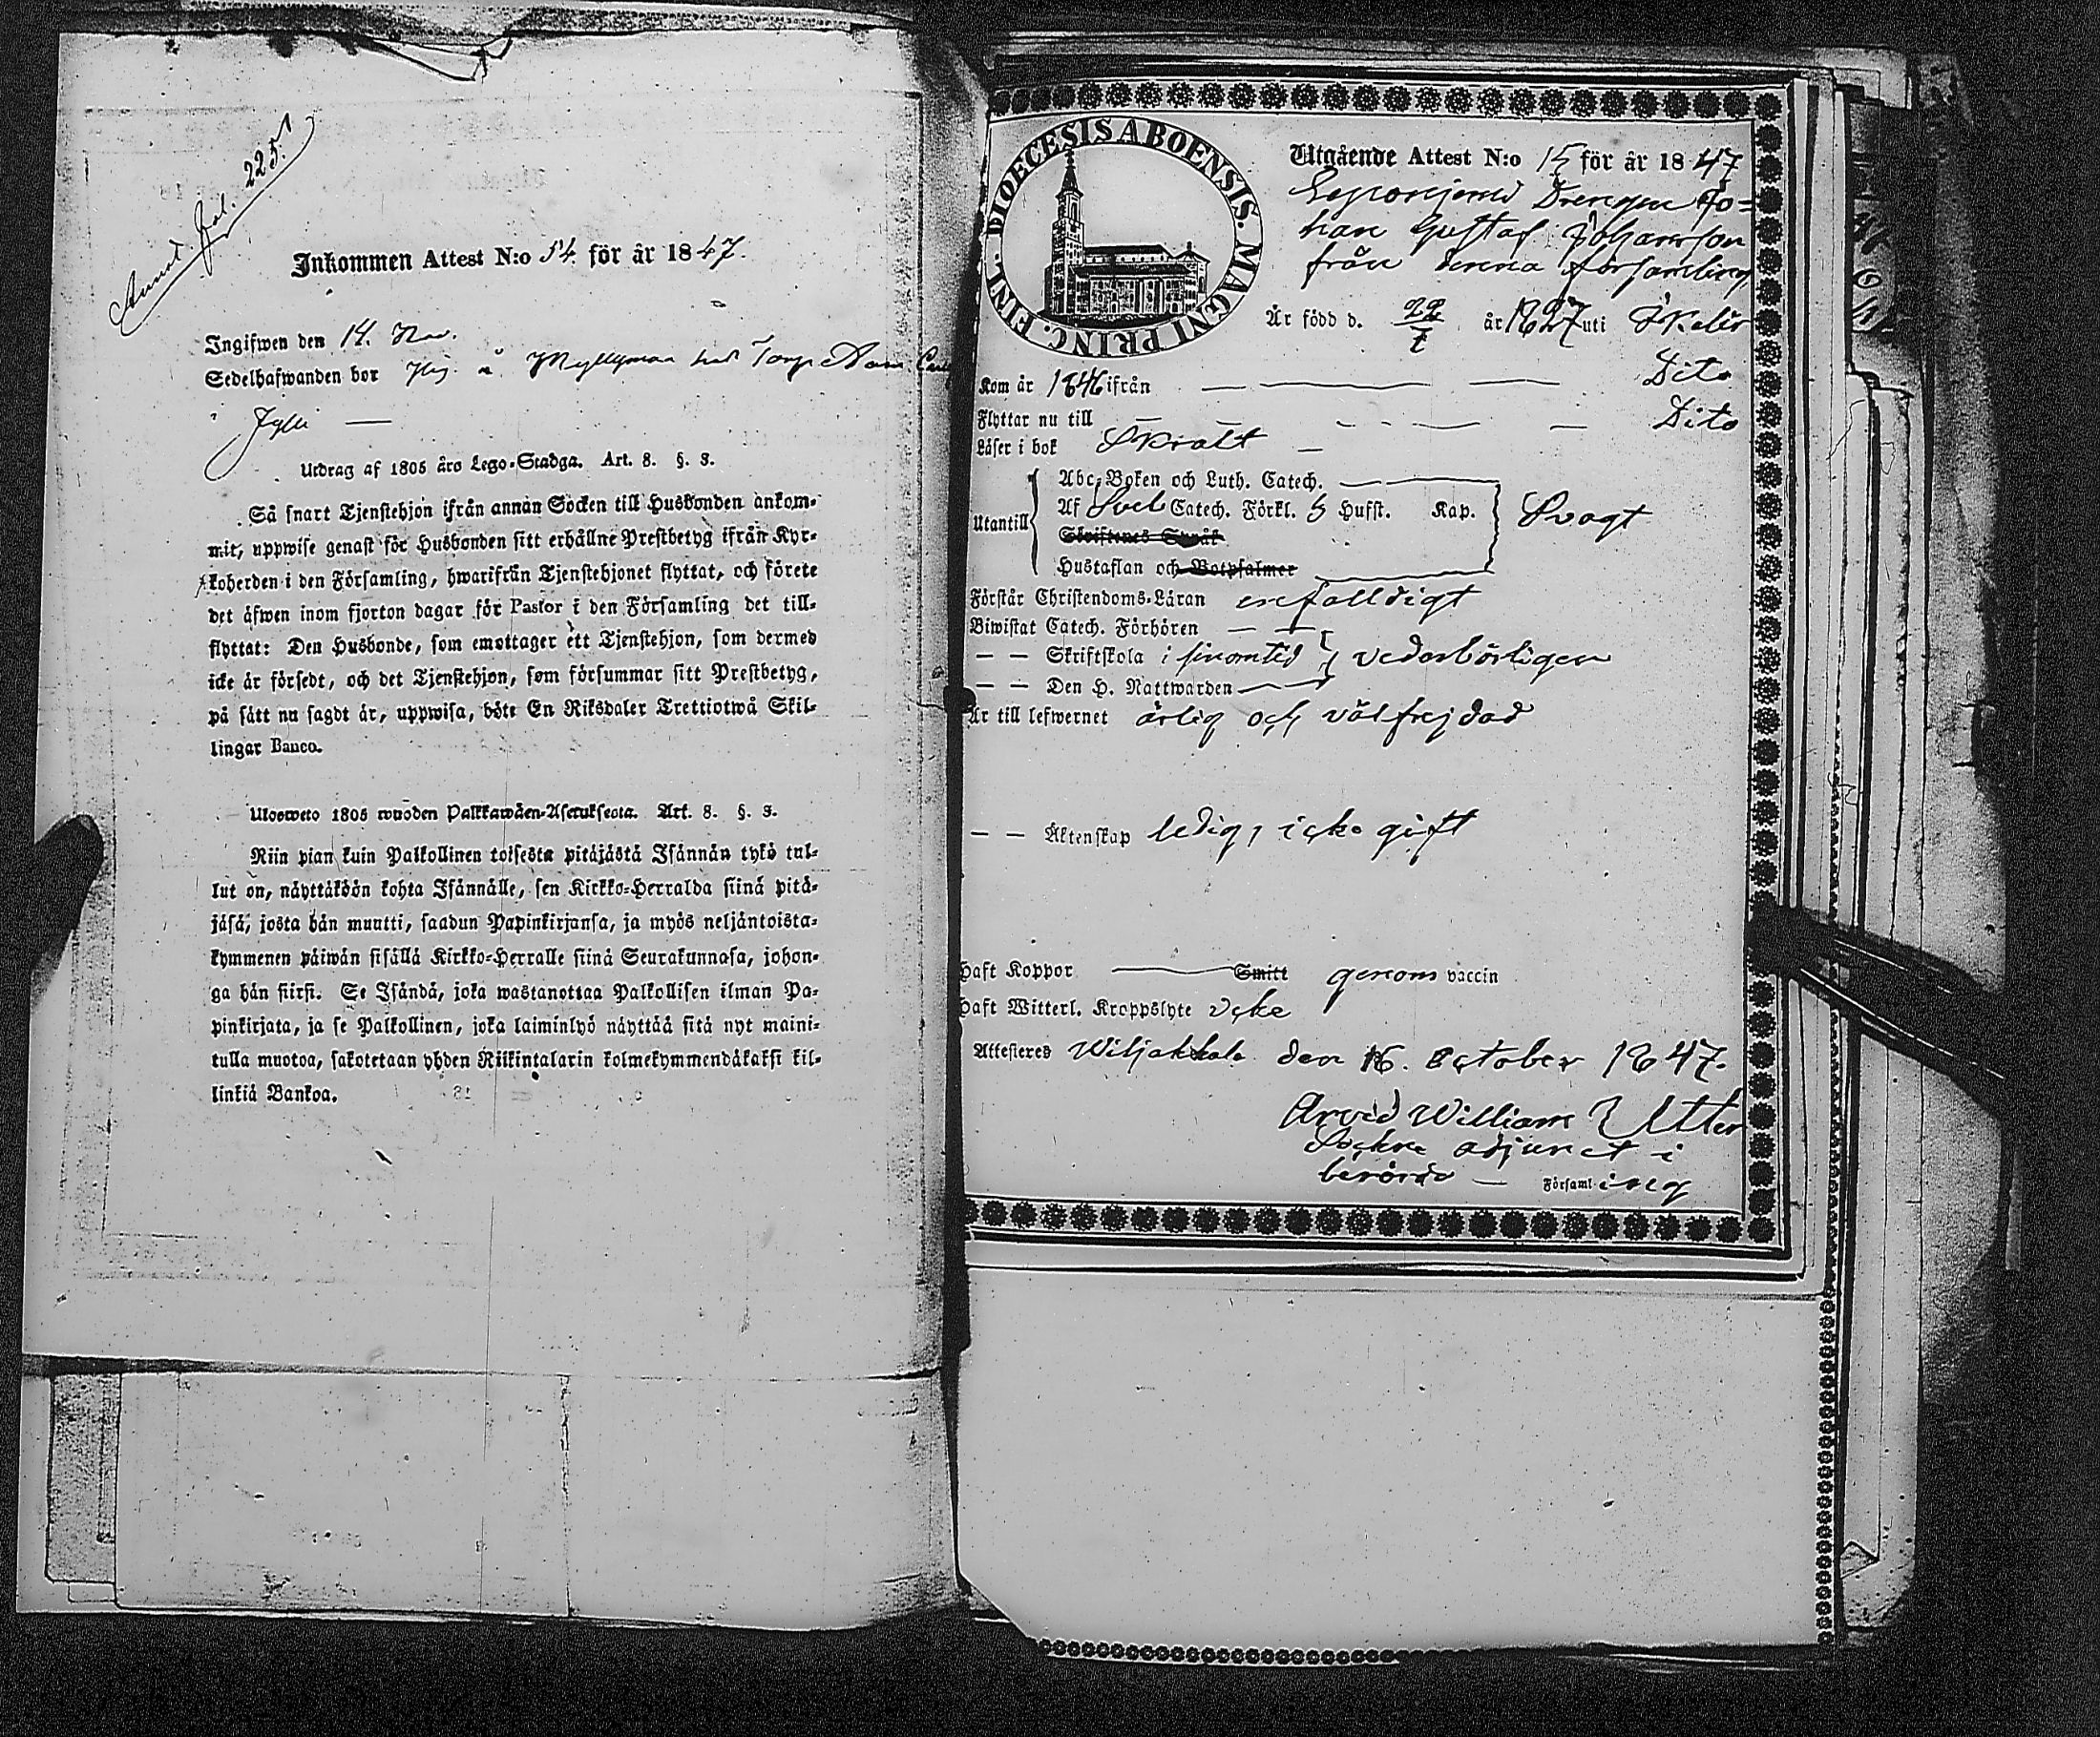 Annot. fol. 225.
Inkommen Attest N:o 54. för år 1847.
Ingifwen den 14. Nov.
Sedelhafwanden bor på Myllymaa hos Torp
Utdrag af 1805 års Lego-Stadga. Art. 8. §. 3.
Så snart Tjenstehjon ifrån annan Socken till Husbonden ankom-
mit, uppwise genast för Husbonden sitt erhållne Prestbetyg ifrån Kyr-
koherden i den Församling, hwarifrån Tjenstehjonet flyttat, och förete
det äfwen inom fjorton dagar för Pastor i den Församling det till-
flyttat: Den Husbonde, som emottager ett Tjenstehjon, som dermed
icke är försedt, och det Tjenstehjon, som försummar sitt Prestbetyg,
på sätt nu sagdt är, uppwisa, böte En Riksdaler Trettiotwå Skil-
lingar Banco.
Ulosweto 1805 wuoden Palkkawäen-Asetuksesta. Art. 8. §. 3.
Niin pian kuin Palkollinen toisesta pitäjästä Isännän tykö tul-
lut on, näyttäköön kohta Isännälle, sen Kirkko-Herralda siinä pitä-
jäsä, josta hän muutti, saadun Papinkirjansa, ja myös neljäntoista-
kymmenen päiwän sisällä Kirkko-Herralle siinä Seurakunnasa, johon-
ga hän siirsi. Se Isändä, joka wastanottaa Palkollisen ilman Pa-
pinkirjata, ja se Palkollinen, joka laiminlyö näyttää sitä nyt maini-
tulla muotoa, sakotetaan yhden Riikintalarin kolmekymmendäkaksi kil-
linkiä Bankoa.
DIOECESIS ABOENSIS. MAGNI PRINC. FINL.
Utgående Attest N:o 15 för år 1847
Drengen Jo=
han Gustaf Johansson
från denna församling
Är född d. 22/7 år 1827 uti Ikalis
Kom år 1846 ifrån — — — Dito
Flyttar nu till — — — Dito
Läser i bok Svagt —
Utantill
Abc-Boken och Luth. Catech.
Af Sveb Catech. Förkl. 5 Hufst. Kap. Svagt
Skriftenes Språk
Hustaflan och Botpsalmer
Förstår Christendoms-Läran enfalldigt
Biwistat Catech. Förhören — —
— — Skriftskola i sinom tid vederbörligen
— — Den H. Nattwarden
Är till lefwernet ärlig och välfrejdad
— — Äktenskap ledig, icke gift
Haft Koppor — Smitt genom vaccin
Haft Witterl. Kroppslyte icke
Attesteres Wiljakkala den 16. October 1847.
Arvid William Utter
Sockne adjunct i
berörde — Församling